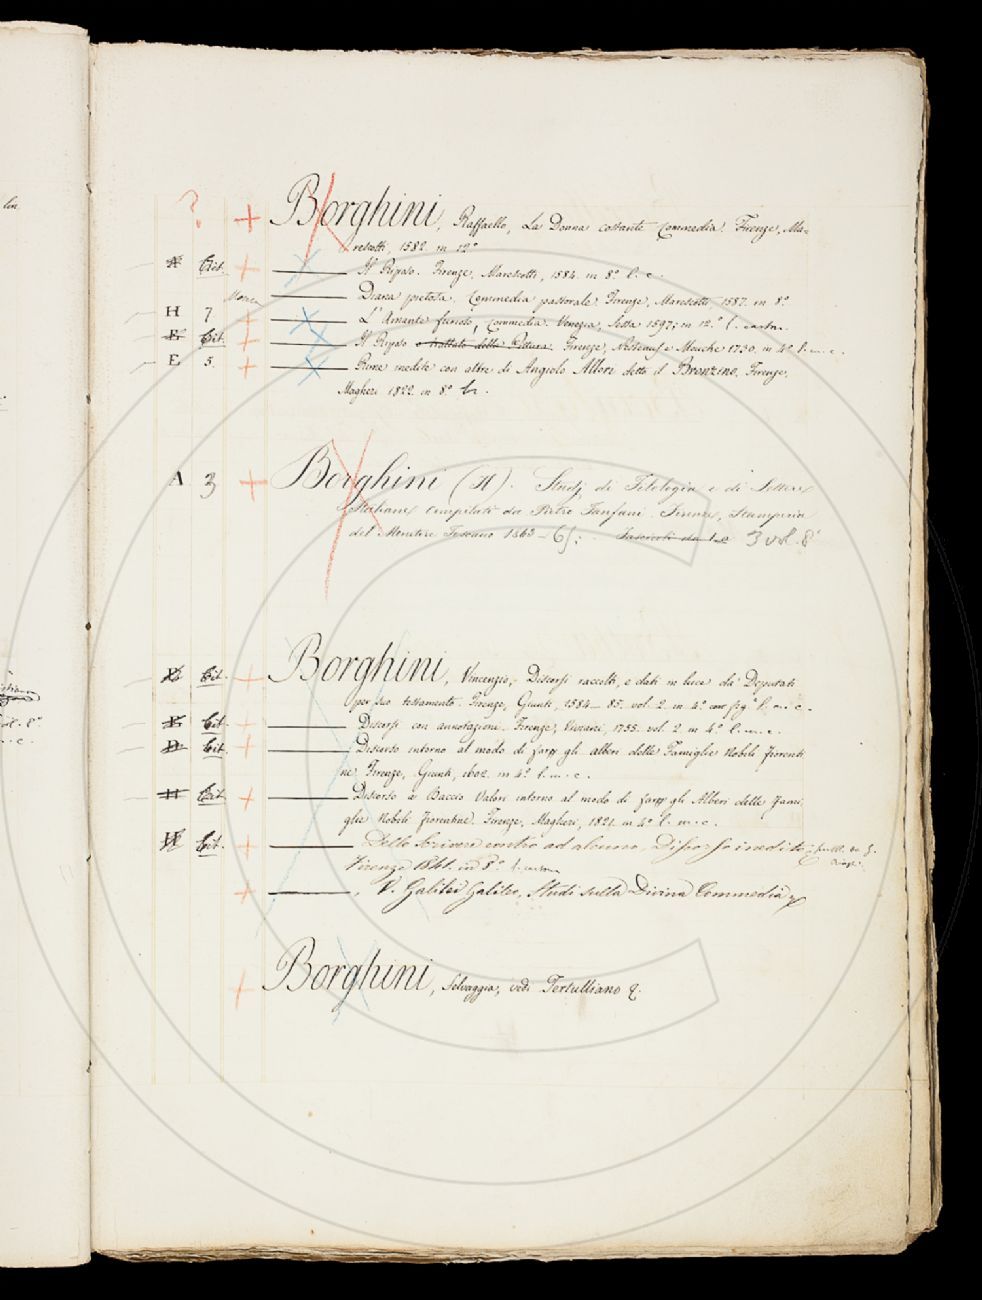 lin
?
+ Borghini, Raffaello, La Donna costante Commedia. Firenze, Ma-
rescotti, 1582. in 12.°
A Cit. + ——— Il Riposo. Firenze, Marescotti, 1584. in 8.° l. c.
——— Diana pietosa, Commedia pastorale. Firenze, Marescotti 1587. in 8.°
H 7 + ——— L'Amante furioso, Commedia. Venezia, Sessa 1597; in 12.° l. carta.
E Cit. + ——— Il Riposo o trattato della Pittura. Firenze, Nestenus e Moucke 1730. in 4.° l. m. c.
E 5. + ——— Rime inedite con altre di Angiolo Allori detto il Bronzino. Firenze,
Magheri 1822. in 8.° br.
A 3 + Borghini (Il). Studj di Filologia e di Lettere
Italiane compilati da Pietro Fanfani. Firenze, Stamperia
del Monitore Toscano 1863 - 65: Fascicoli da 1 e 3 vol. 8°
Cit. + Borghini, Vincenzio, Discorsi raccolti, e dati in luce da' Deputati
per suo testamento. Firenze, Giunti, 1584–85. vol. 2. in 4.° con fig.e l. m. c.
E Cit. + ——— Discorsi con annotazioni. Firenze, Viviani, 1755. vol. 2. in 4.° l. m. c.
D Cit. + ——— Discorso intorno al modo di fare gli alberi delle Famiglie Nobili fiorenti
ne. Firenze, Giunti, 1602. in 4.° l. m. c.
H Cit. + ——— Discorso a Baccio Valori intorno al modo di fare gli Alberi delle fami
glie Nobili fiorentine. Firenze, Magheri, 1821. in 4.° l. m. c.
H Cit. + ——— Dello Scrivere contro ad alcuno, Discorso inedito
Firenze 1841. in 8.° l. carta
+ ———, V. Galilei Galileo, Studi sulla Divina Commedia
+ Borghini, Selvaggia, vedi Tertulliano Q.